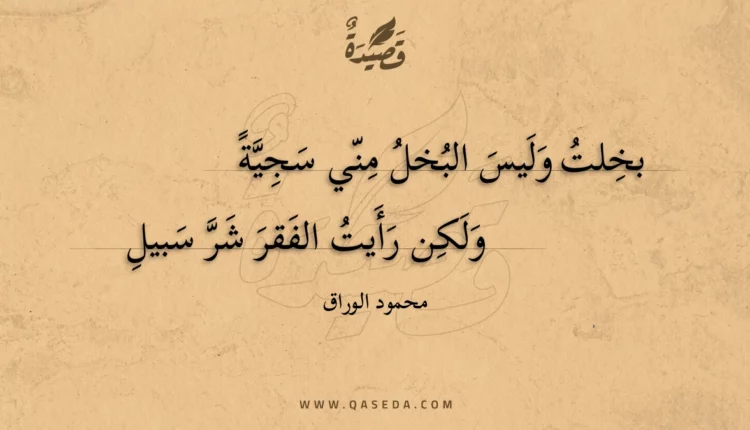 قَصِيْدَةٌ
بخِلتُ وَلَيسَ البُخلُ مِنّي سَجِيَّةً
وَلَكِن رَأَيتُ الفَقرَ شَرَّ سَبيلِ
محمود الوراق
WWW.QASEDA.COM